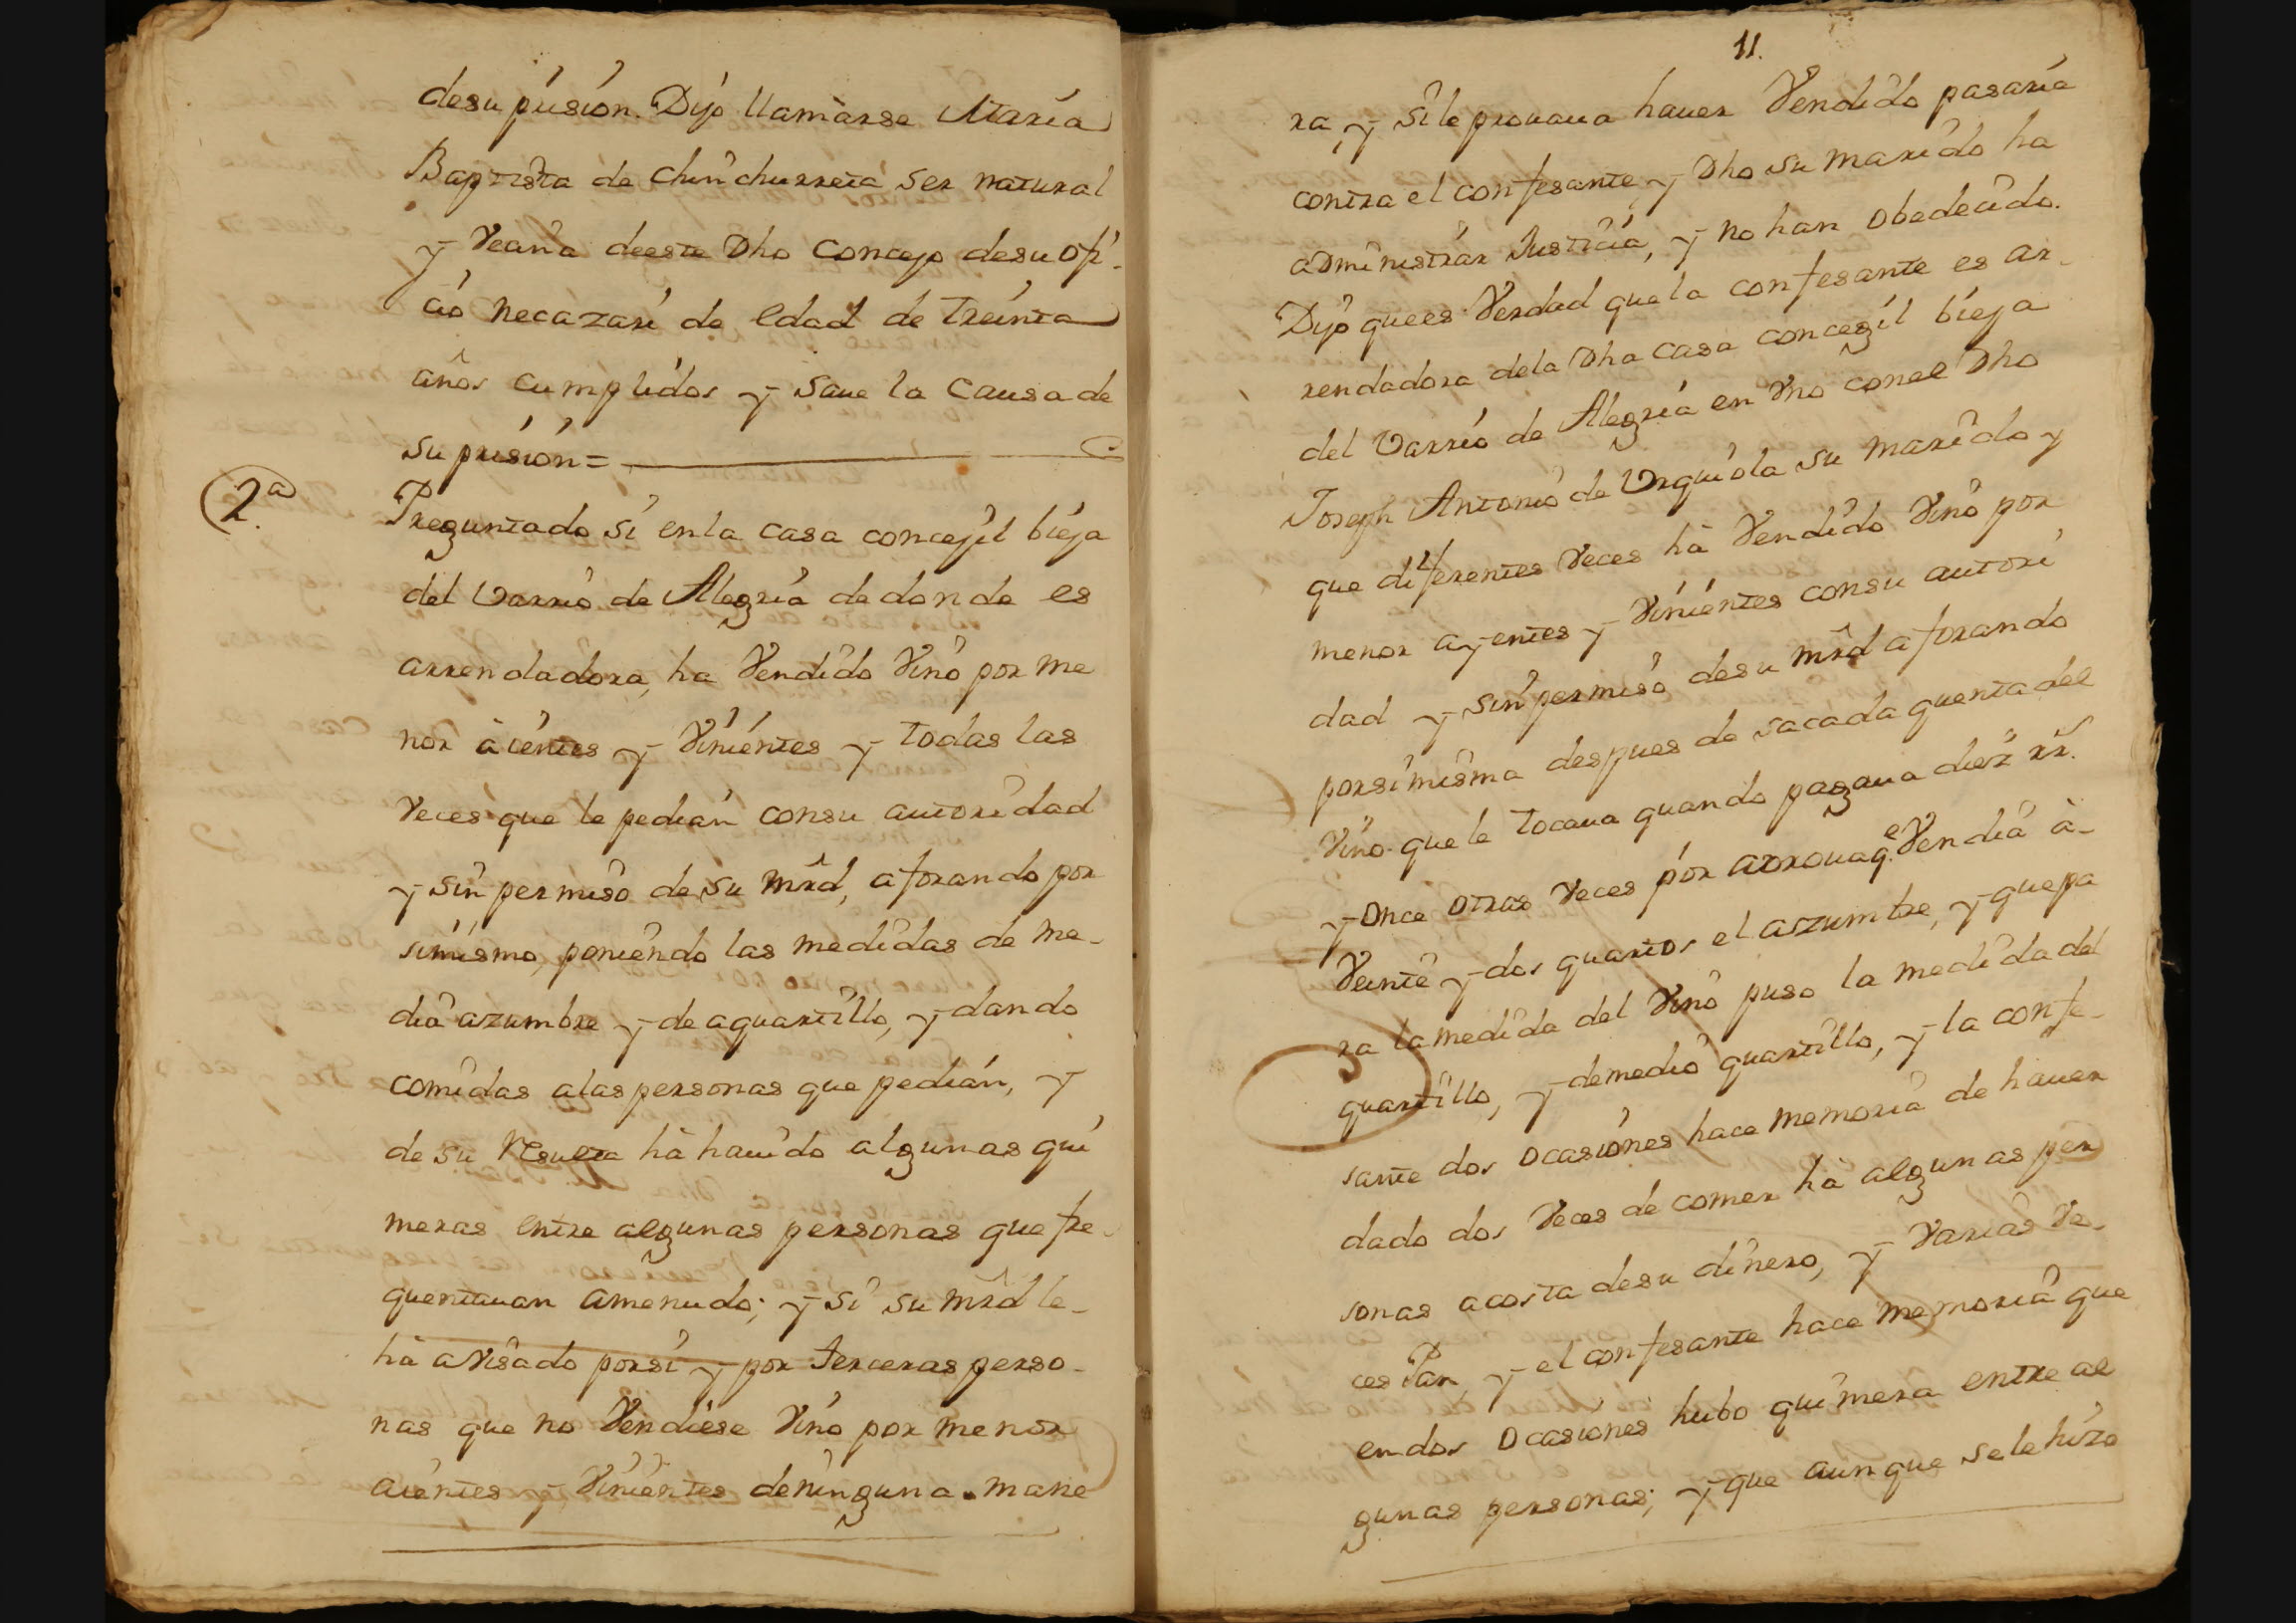 desu prision. Dijo llamarse Maria
Baptista de chinchurreta ser natural
y Vecina deeste Dho Concejo desu ofi-
cio necazari de edad de treinta
años cumplidos y save la Causa de
su prision =
2.ª
Preguntado si enla casa concejil bieja
del Varrio de Alegria de donde es
arrendadora, ha Vendido Vino por me
nor à ientes y Vinientes y todas las
Veces que le pedian consu autoridad
y sin permiso de su mrd, aforando por
simismo, poniendo las medidas de me-
dia azumbre y de aquartillo, y dando
comidas alas personas que pedian, y
de su resulta hà havido algunas qui
meras entre algunas personas que fre-
quentavan amenudo; y si su mrd le-
hà avisado porsi y por terceras perso-
nas que no Vendiese Vino por menor
aientes y Vinientes deninguna mane
11.
ra, y si le provava haver Vendido pasaria
contra el confesante, y Dho su marido ha
administrar Justicia, y no han obedecido.
Dijo quees Verdad quela confesante es ar-
rendadora dela Dha casa concegil bieja
del Varrio de Alegria en Vno conel Dho
Joseph Antonio de Vrquiola su marido y
que diferentes Veces hà Vendido Vino por
menor ayentes y Vinientes consu autori
dad y sin permiso desu mrd aforando
porsimisma despues de sacada quenta del
Vino que le tocava quando pagava diez rr.
y once otras Veces por arrova q.e Vendia à-
Veinte y dos quartos el aszumbre, y que pa
ra la medida del Vino puso la medida del
quartillo, y demedio quartillo, y la confe-
sante dos ocasiones hace memoria de haver
dado dos Veces de comer hà algunas per
sonas acosta desu dinero, y Varias Ve-
ces Pan, y el confesante hace memoria que
endos ocasiones hubo quimera entre al
gunas personas; y que aunque sele hizo